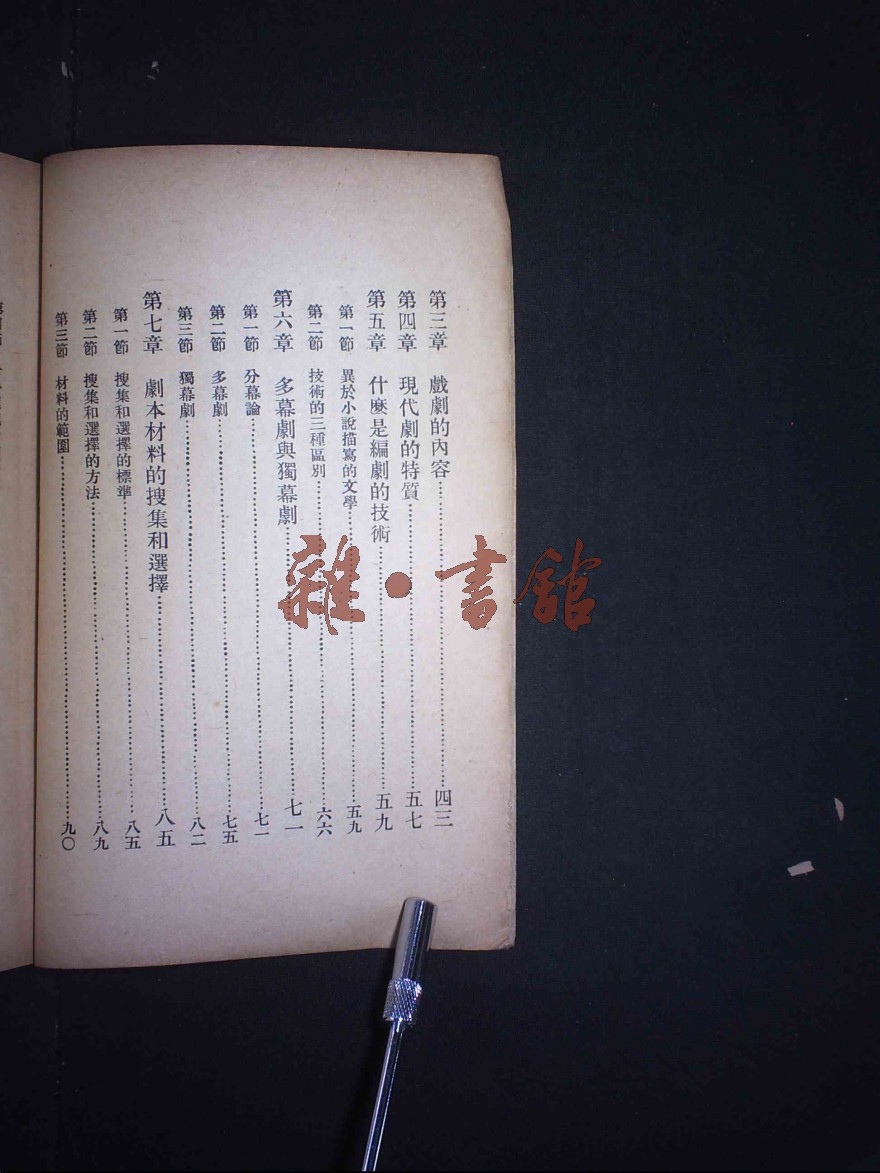 第三章 戲劇的內容…………四三
第四章 現代劇的特質…………五七
第五章 什麼是編劇的技術…………五九
第一節 異於小說描寫的文學…………五九
第二節 技術的三種區別…………六六
第六章 多幕劇與獨幕劇…………七一
第一節 分幕論…………七一
第二節 多幕劇…………七五
第三節 獨幕劇…………八二
第七章 劇本材料的搜集和選擇…………八五
第一節 搜集和選擇的標準…………八五
第二節 搜集和選擇的方法…………八九
第三節 材料的範圍…………九〇
雜·書館